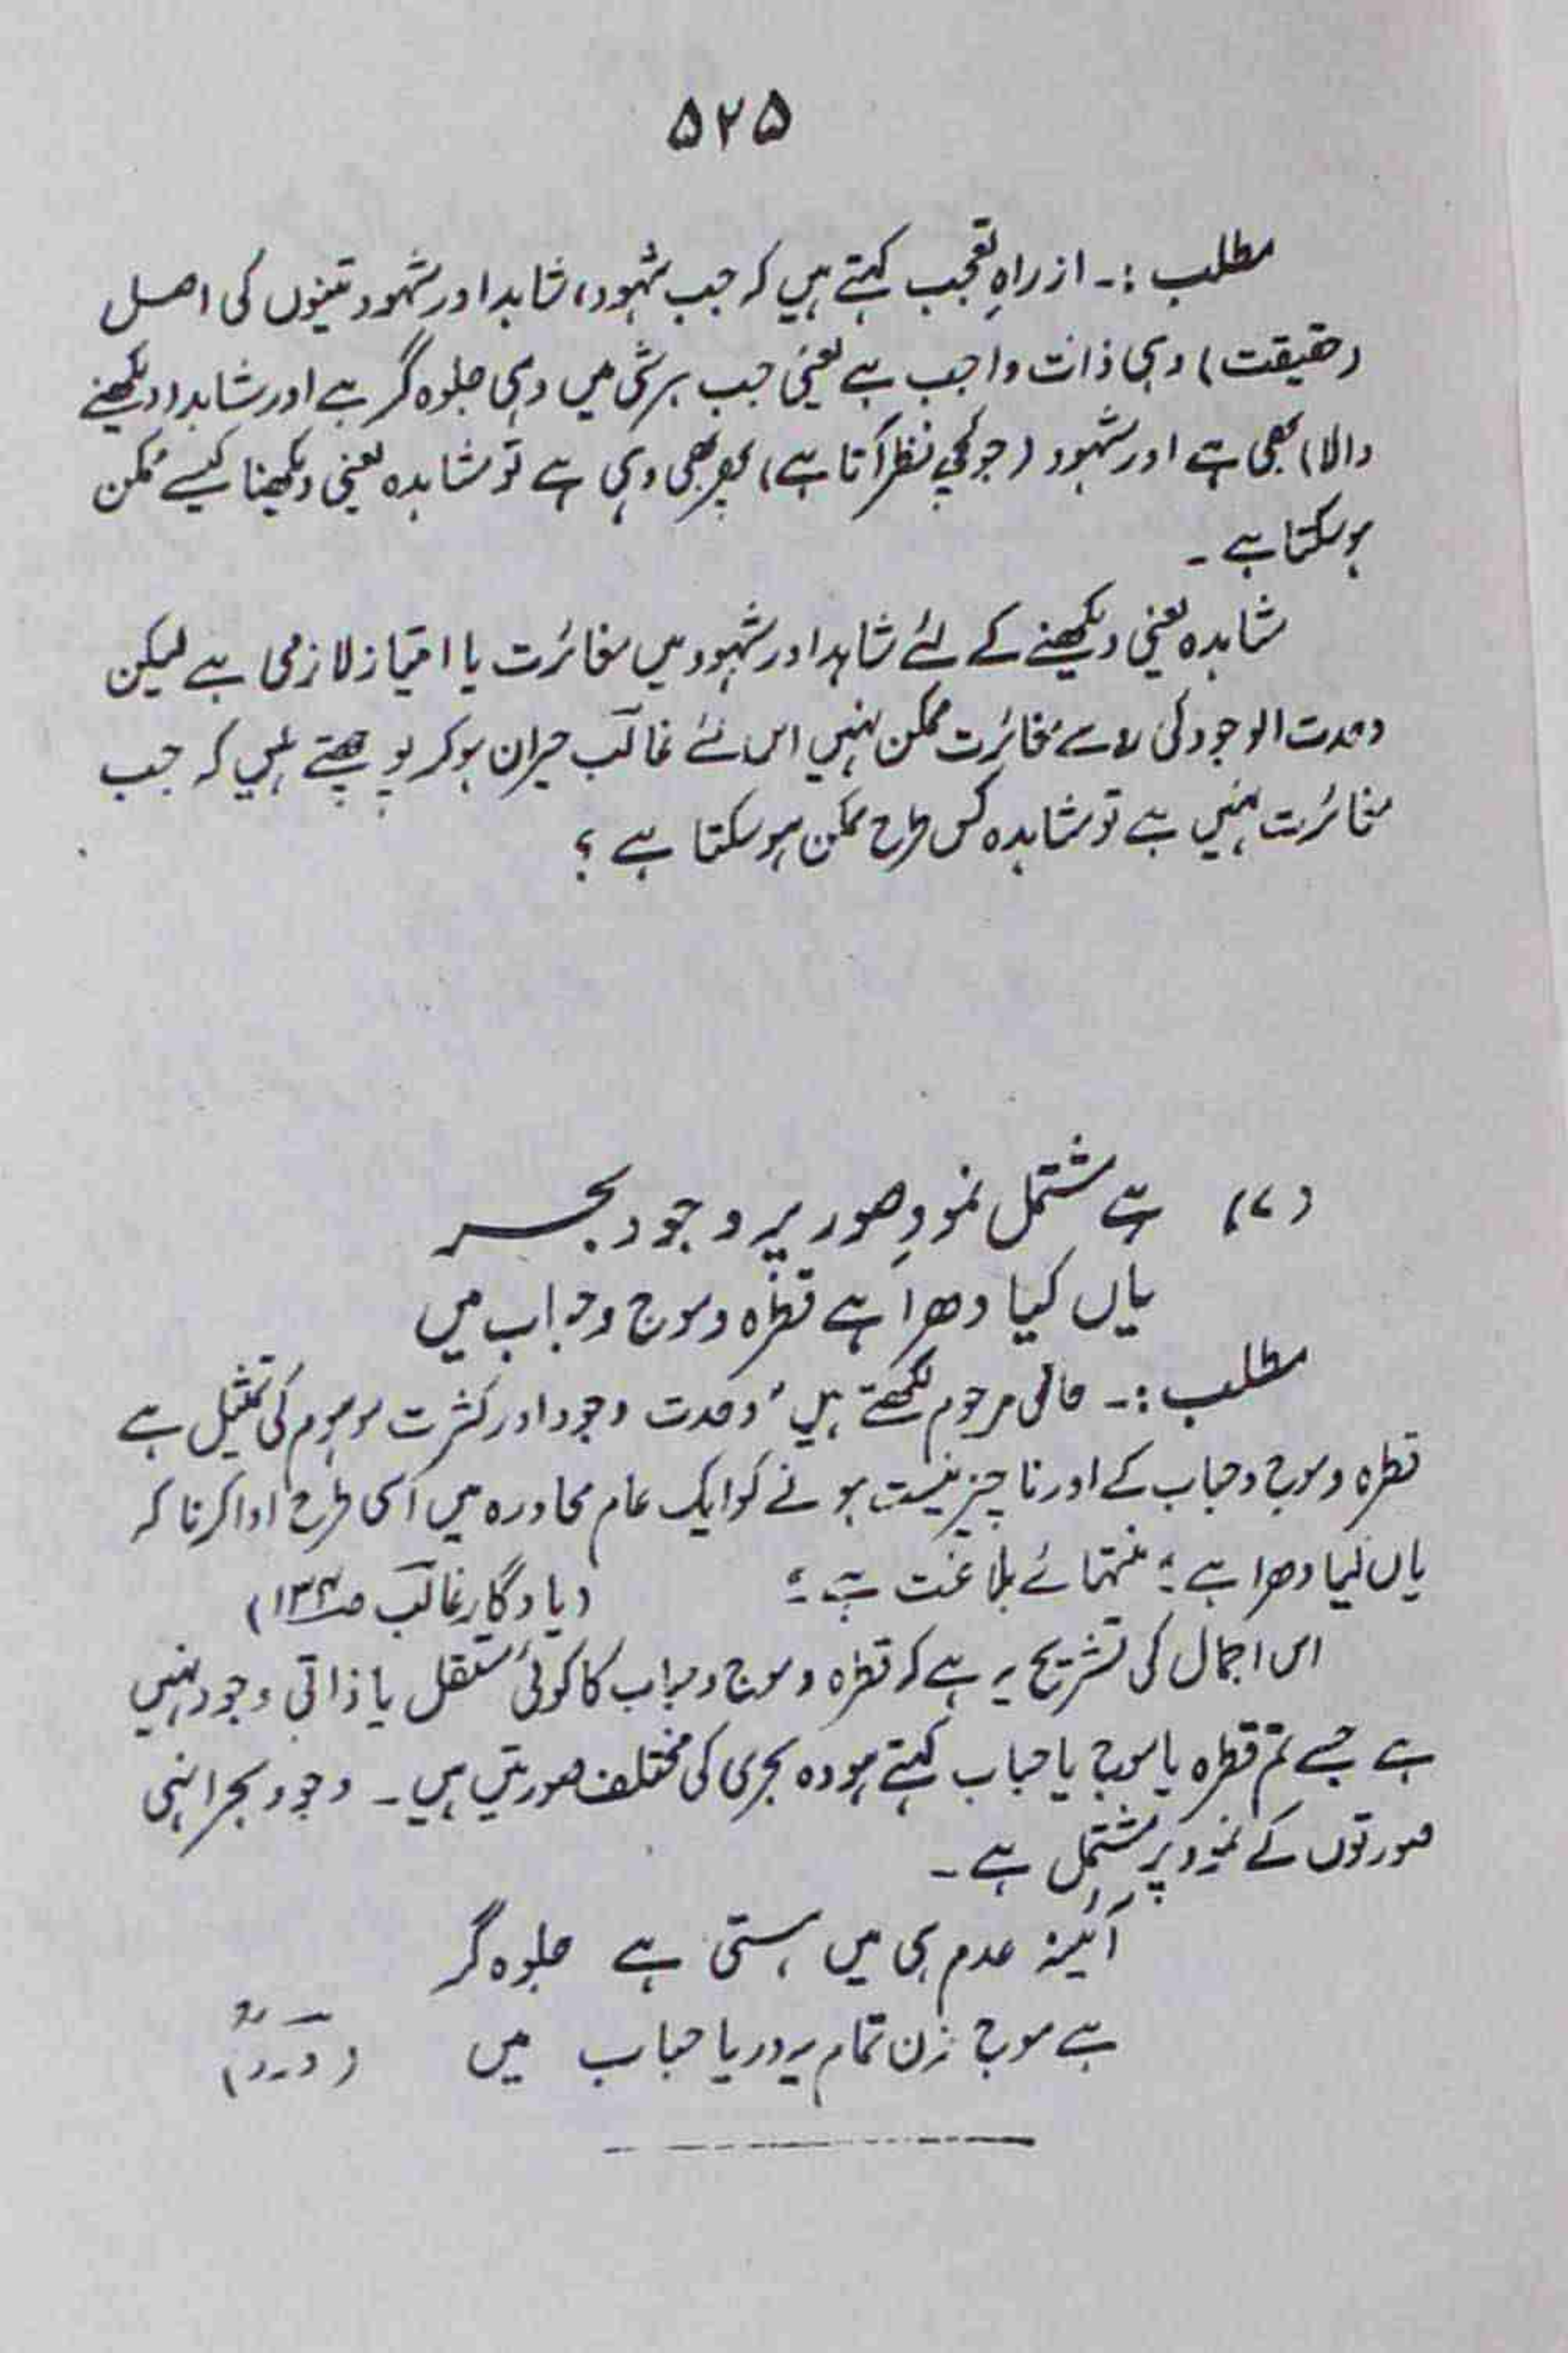 ۵۲۵
مطلب :۔ از راہِ تعجب کہتے ہیں کہ جب شہود، شاہد اور مشہود تینوں کی اصل
(حقیقت) وہی ذات واجب ہے یعنی جب ہر شئ میں وہی جلوہ گر ہے اور شاہد (دیکھنے
والا) بھی ہے اور مشہود (جو کچھ نظر آتا ہے) پھر بھی وہی ہے تو مشاہدہ یعنی دیکھنا کیسے ممکن
ہو سکتا ہے ۔
مشاہدہ یعنی دیکھنے کے لئے شاہد اور مشہود میں مغائرت یا امتیاز لازمی ہے لیکن
وحدت الوجود کی رو سے مغائرت ممکن نہیں اس لئے غالب حیران ہو کر پوچھتے ہیں کہ جب
مغائرت نہیں ہے تو مشاہدہ کس طرح ممکن ہو سکتا ہے ؟
(۷) ہے مشتمل نمودِ صور پر وجود بحر
یاں کیا دھرا ہے قطرہ و موج و حباب میں
مطلب :۔ حالی مرحوم لکھتے ہیں "وحدت وجود اور کثرت موہوم کی تمثیل ہے
قطرہ و موج و حباب کے اور ناچیز نیست ہونے کو ایک عام محاورہ میں اسی طرح ادا کرنا کہ
یاں کیا دھرا ہے " منتہائے بلاغت ہے " (یادگارِ غالب صـ۱۳۴)
اس اجمال کی تشریح یہ ہے کہ قطرہ و موج و حباب کا کوئی مستقل یا ذاتی وجود نہیں
ہے جسے تم قطرہ یا موج یا حباب کہتے ہو وہ بحر ہی کی مختلف صورتیں ہیں ۔ وجود بحر انہی
صورتوں کے نمود پر مشتمل ہے ۔
آئینہ عدم ہی میں ہستی ہے جلوہ گر
ہے موج زن تمام یہ دریا حباب میں (درد)